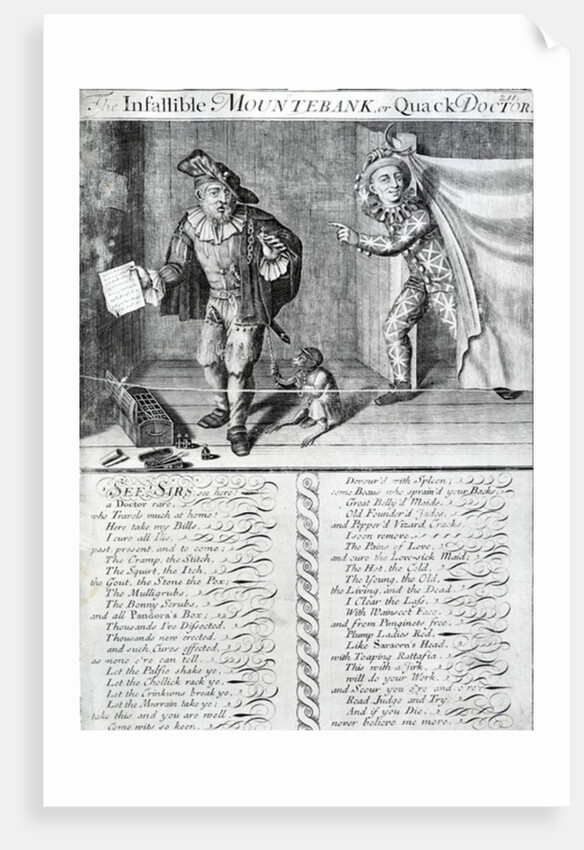 The Infallible MOUNTEBANK, or Quack DOCTOR.
211
SEE SIRS, see here!
a Doctor rare,
who Travels much at home!
Here take my Bills,
I cure all Ills,
past, present, and to come;
The Cramp, the Stitch,
The Squirt, the Itch,
the Gout, the Stone the Pox;
The Mulligrubs,
The Bonny Scrubs,
and all Pandora's Box;
Thousands I've Dissected,
Thousands new erected,
and such Cures effected,
as none e're can tell.
Let the Palsie shake ye,
Let the Chollick rack ye,
Let the Crinkums break ye,
Let the Murrain take ye;
take this and you are well.
Come wits so keen,
Devour'd with Spleen;
come Beaus who sprain'd your Backs,
Great Belly'd Maids,
Old Founder'd Jades,
and Pepper'd Vizard Cracks.
I soon remove
The Pains of Love,
and cure the Love-sick Maid;
The Hot, the Cold,
The Young, the Old,
the Living, and the Dead.
I Clear the Lass,
With Wainscot Face,
and from Pimginets free,
Plump Ladies Red,
Like Saracen's Head,
with Toaping Rattafia.
This with a Jirk,
will do your Work,
and Scour you o're and o're
Read Judge and Try
And if you Die,
never believe me more.